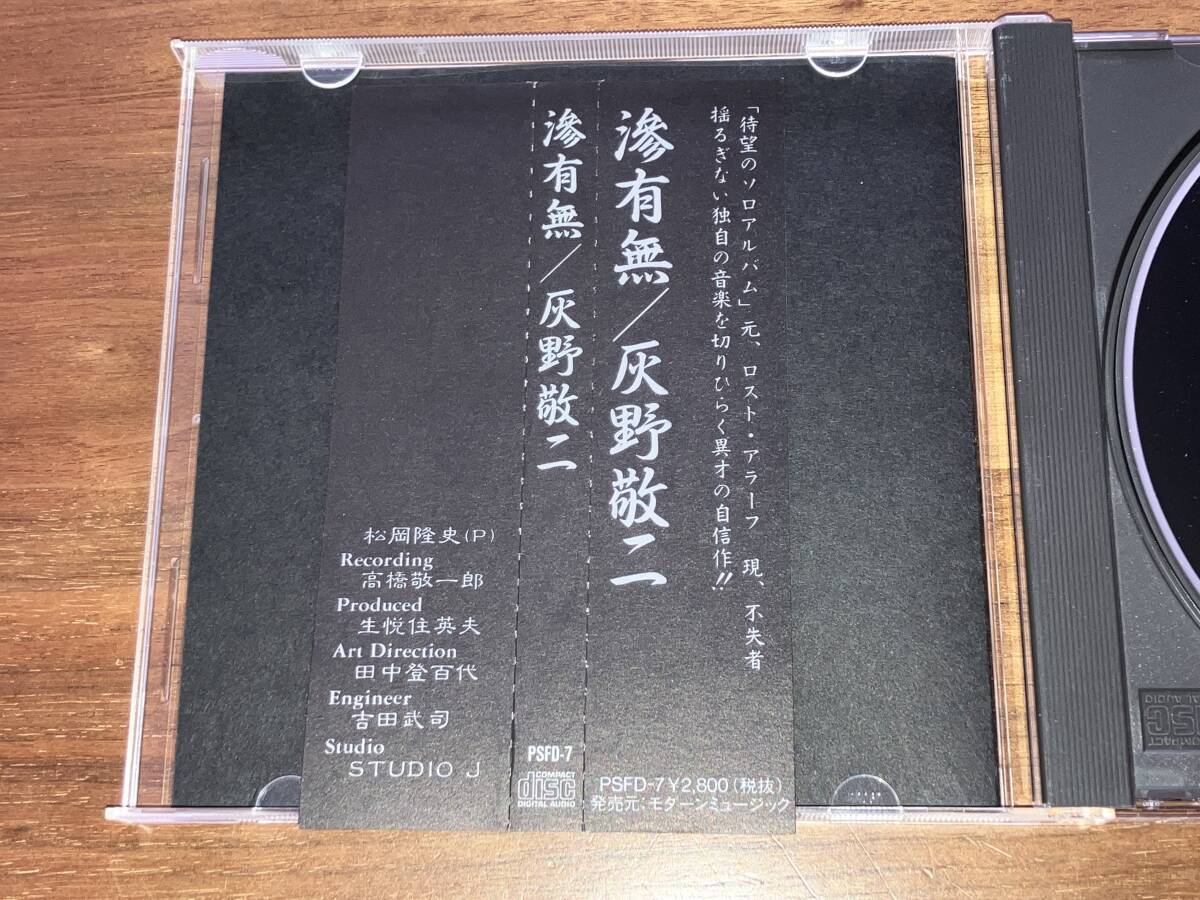 「待望のソロアルバム」元、ロスト・アラーフ 現、不失者
揺るぎない独自の音楽を切りひらく異才の自信作!!
滲有無/灰野敬二
PSFD-7¥2,800(税抜)
発売元:モダーンミュージック
滲有無/灰野敬二
PSFD-7
COMPACT
disc
DIGITAL AUDIO
松岡隆史(P)
Recording
高橋敬一郎
Produced
生悦住英夫
Art Direction
田中登百代
Engineer
吉田武司
Studio
STUDIO J
COMPACT
DISC
DIGITAL AUDIO